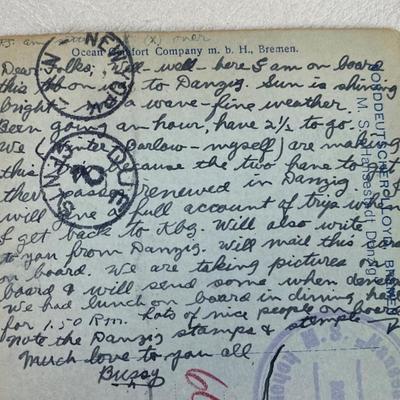 (X) over
Ocean Comfort Company m. b. H., Bremen.
Dear Folks; Well - well - here I am on board
this to Danzig. Sun is shining
bright a wave - fine weather.
Been going an hour, have 2½ to go.
We Darlow - myself) are making
this cause the two have to get
their passes renewed in Danzig.
will have a full account of tryp when
I get back to Kbg. Will also write
to you from Danzig. Will mail this card
on board. We are taking pictures on
board & will send some when develop
We had lunch on board in dining hall
for 1.50 Rm. Lots of nice people on board
note the Danzig stamps & stemple
Much love to you all
Bussy
NEW YORK
NORDDEUTSCHER LLOYD, BREMEN
M. S. "Hansestadt Danzig"